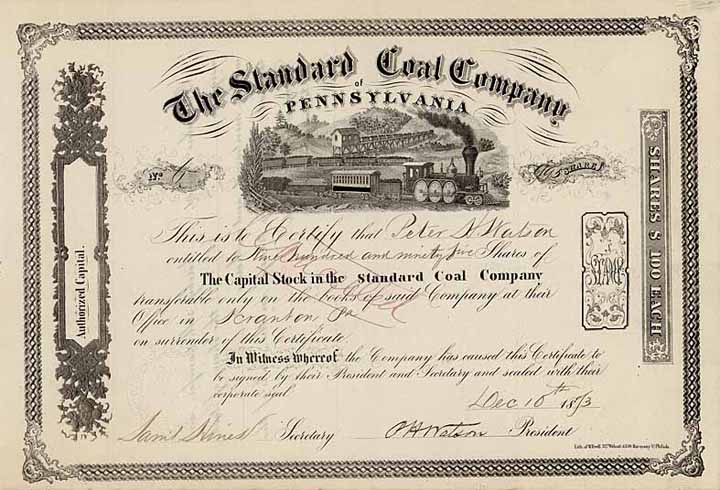 The Standard Coal Company
of
PENNSYLVANIA
No. 6
SHARES
This is to Certify that Peter H Watson
entitled to Nine hundred and ninety five Shares of
The Capital Stock in the Standard Coal Company
transferable only on the books of said Company at their
Office in Scranton Pa
on surrender of this Certificate.
In Witness whereof the Company has caused this Certificate to
be signed by their President and Secretary and sealed with their
corporate seal
Dec 10th 1873
Saml Hines Secretary P H Watson President
Authorized Capital.
SHARES $ 100 EACH
STAMP